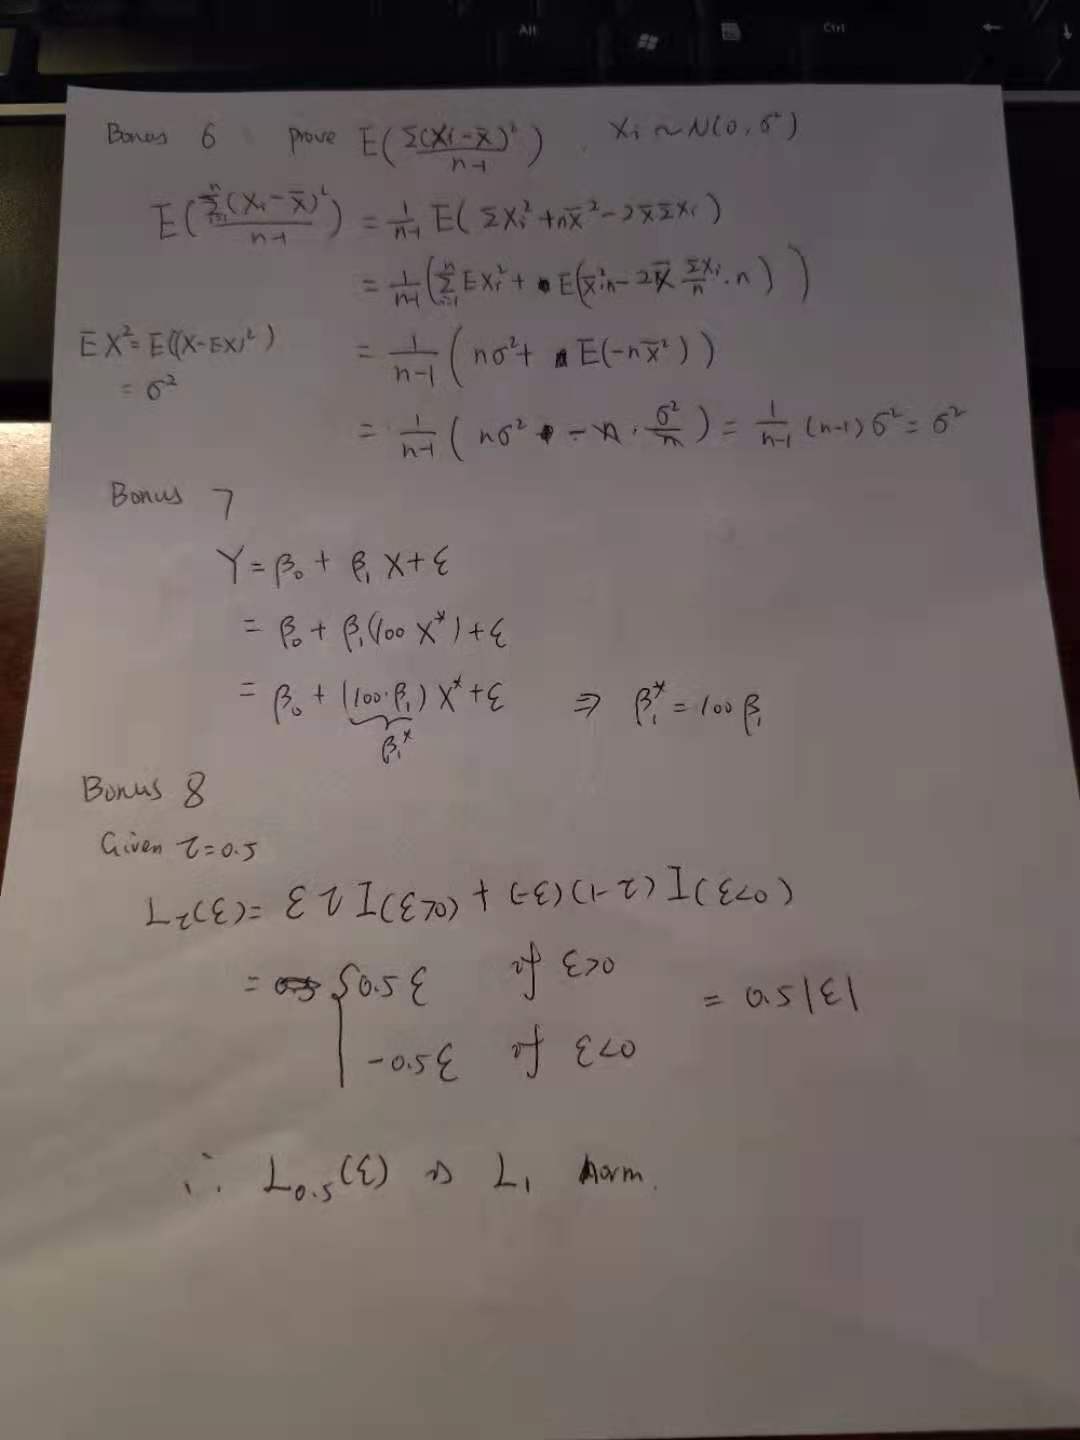 Alt
Ctrl
←
↓
Bonus 6 prove E(Σ(Xi-X̄)²/n-1) . Xi ~ N(0, σ²)
E(Σⁿᵢ₌₁(Xi-X̄)²/n-1) = 1/n-1 E(ΣXi²+nX̄²-2X̄ΣXi)
= 1/n-1 (Σⁿᵢ₌₁ EXi² + E(X̄²·n-2X̄ ΣXi/n · n))
EX² = E((X-EX)²) = 1/n-1 (nσ² + E(-nX̄²))
= σ²
= 1/n-1 (nσ² - n · σ²/n) = 1/n-1 (n-1)σ² = σ²
Bonus 7
Y = β₀ + β₁ X + ε
= β₀ + β₁(100 X*) + ε
= β₀ + (100·β₁) X* + ε ⇒ β₁* = 100 β₁
β₁*
Bonus 8
Given τ=0.5
Lτ(ε) = ε τ I(ε>0) + (-ε)(τ-1) I(ε<0)
= { 0.5 ε if ε>0 = 0.5|ε|
-0.5 ε if ε<0
∴ L₀.₅(ε) is L₁ norm.